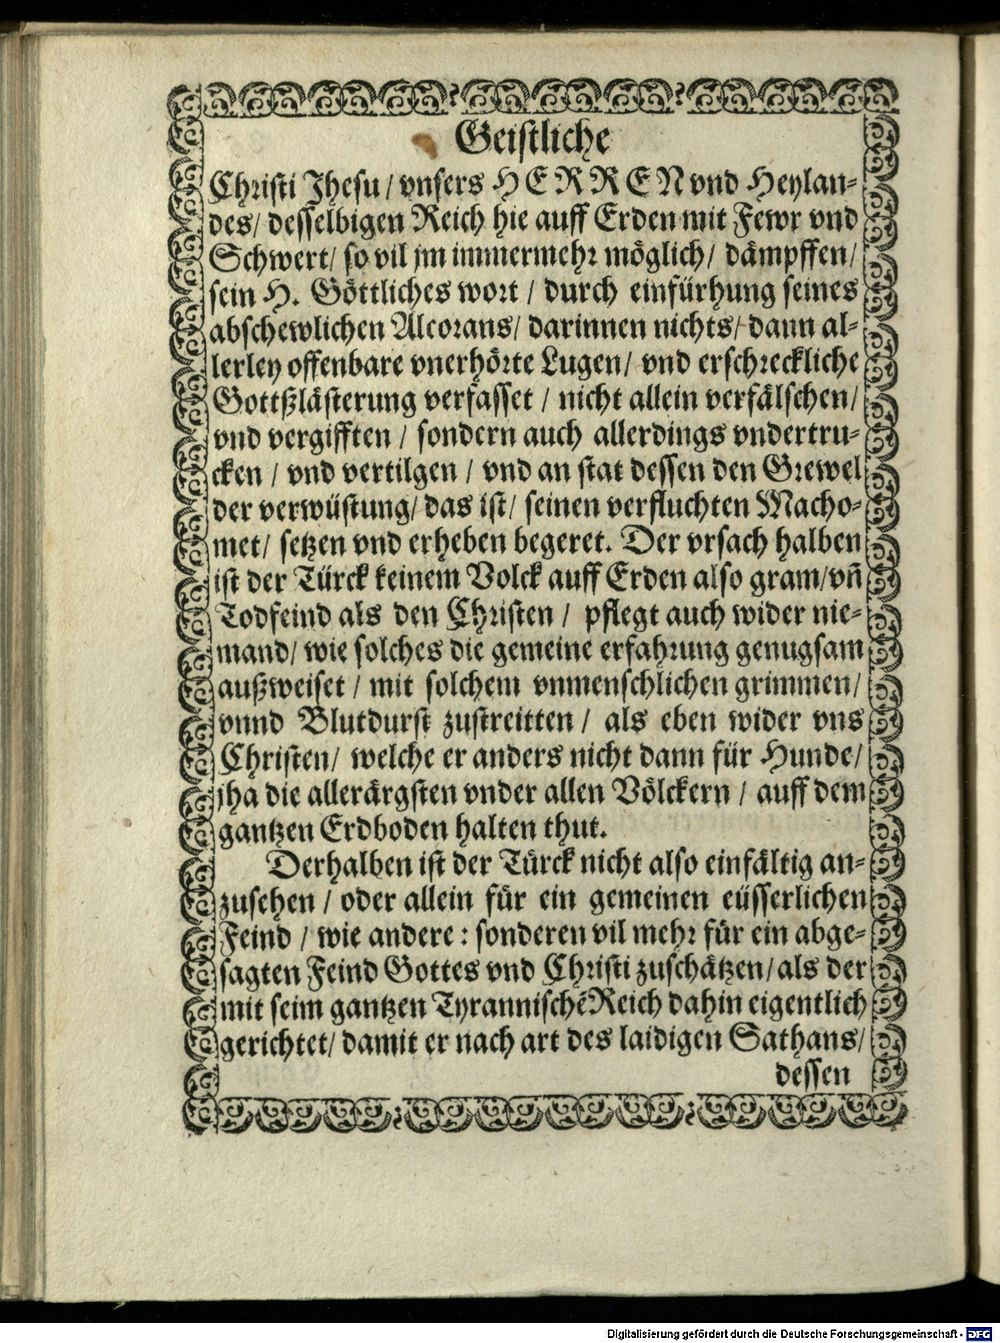 Geistliche
Christi Jhesu / vnsers HERREN vnd Heylan-
des / desselbigen Reich hie auff Erden mit Fewr vnd
Schwert / so vil jm immermehr möglich / dämpffen /
sein H. Göttliches wort / durch einfürhung seines
abschewlichen Alcorans / darinnen nichts / dann al-
lerley offenbare vnerhörte Lugen / vnd erschreckliche
Gottßlästerung verfasset / nicht allein verfälschen /
vnd vergifften / sondern auch allerdings vndertru-
cken / vnd vertilgen / vnd an stat dessen den Grewel
der verwüstung / das ist / seinen verfluchten Macho-
met / setzen vnd erheben begeret. Der vrsach halben
ist der Türck keinem Volck auff Erden also gram / vñ
Todfeind als den Christen / pflegt auch wider nie-
mand / wie solches die gemeine erfahrung genugsam
außweiset / mit solchem vnmenschlichen grimmen /
vnnd Blutdurst zustreitten / als eben wider vns
Christen / welche er anders nicht dann für Hunde /
jha die allerärgsten vnder allen Völckern / auff dem
gantzen Erdboden halten thut.
Derhalben ist der Türck nicht also einfältig an-
zusehen / oder allein für ein gemeinen eüsserlichen
Feind / wie andere : sonderen vil mehr für ein abge-
sagten Feind Gottes vnd Christi zuschätzen / als der
mit seim gantzen Tyrannischẽ Reich dahin eigentlich
gerichtet / damit er nach art des laidigen Sathans /
dessen
Digitalisierung gefördert durch die Deutsche Forschungsgemeinschaft - DFG